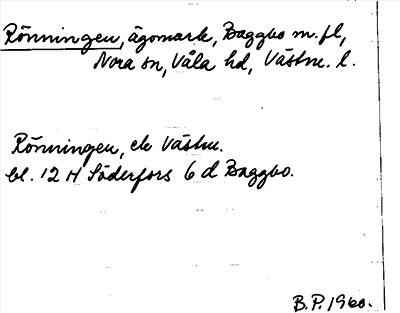 Rönningen, ägomark, Baggbo m.fl,
Nora sn, Våla hd, Västm. l.
Rönningen, ek Västm.
bl. 12 H Söderfors 6 d Baggbo.
B.P. 1960.